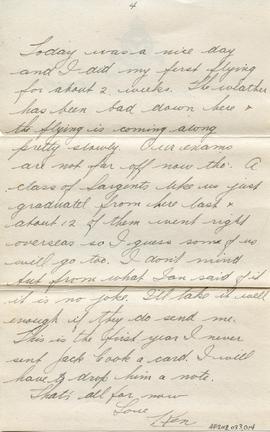 4
Today was a nice day
and I did my first flying
for about 2 weeks. The weather
has been bad down here &
the flying is coming along
pretty slowly. Our exams
are not far off now tho'. A
class of Sargents like us just
graduated from here last &
about 12 of them went right
overseas so I guess some of us
will go too. I don't mind
but from what Ian said of it
it is no joke. I'll take it well
enough if they do send me.
This is the first year I never
sent Jack Cook a card. I will
have to drop him a note.
That's all for now
Love
Ken